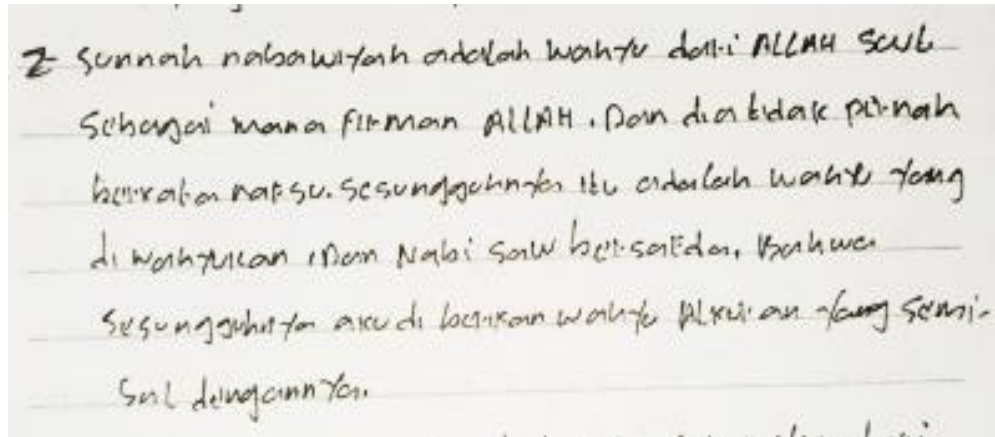 2 Sunnah nabawiyah adalah wahyu dari ALLAH SWT
Sebagai mana firman ALLAH. Dan dia tidak pernah
berkata nafsu. Sesungguhnya itu adalah wahyu yang
di wahyukan, Dan Nabi Saw bersabda, Bahwa
Sesungguhnya aku di berikan wahyu Alkuran yang semi-
sal dengannya.